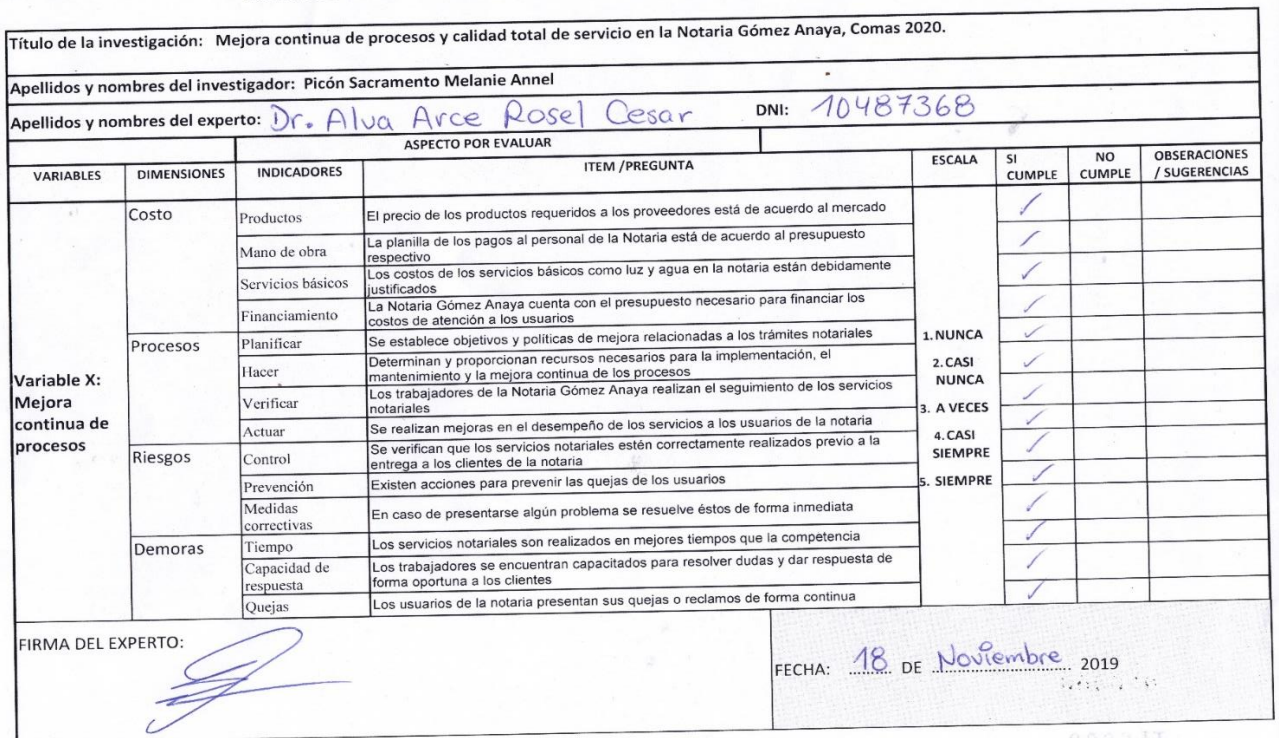 Título de la investigación: Mejora continua de procesos y calidad total de servicio en la Notaria Gómez Anaya, Comas 2020.
Apellidos y nombres del investigador: Picón Sacramento Melanie Annel
Apellidos y nombres del experto: Dr. Alva Arce Rosel Cesar DNI: 10487368
ASPECTO POR EVALUAR
VARIABLES DIMENSIONES INDICADORES ITEM /PREGUNTA ESCALA SI CUMPLE NO CUMPLE OBSERACIONES / SUGERENCIAS
Variable X:
Mejora
continua de
procesos
Costo
Productos El precio de los productos requeridos a los proveedores está de acuerdo al mercado ✓
Mano de obra La planilla de los pagos al personal de la Notaria está de acuerdo al presupuesto
respectivo ✓
Servicios básicos Los costos de los servicios básicos como luz y agua en la notaria están debidamente
justificados ✓
Financiamiento La Notaria Gómez Anaya cuenta con el presupuesto necesario para financiar los
costos de atención a los usuarios ✓
Procesos
Planificar Se establece objetivos y políticas de mejora relacionadas a los trámites notariales ✓
Hacer Determinan y proporcionan recursos necesarios para la implementación, el
mantenimiento y la mejora continua de los procesos ✓
Verificar Los trabajadores de la Notaria Gómez Anaya realizan el seguimiento de los servicios
notariales ✓
Actuar Se realizan mejoras en el desempeño de los servicios a los usuarios de la notaria ✓
Riesgos
Control Se verifican que los servicios notariales estén correctamente realizados previo a la
entrega a los clientes de la notaria ✓
Prevención Existen acciones para prevenir las quejas de los usuarios ✓
Medidas
correctivas En caso de presentarse algún problema se resuelve éstos de forma inmediata ✓
Demoras
Tiempo Los servicios notariales son realizados en mejores tiempos que la competencia ✓
Capacidad de
respuesta Los trabajadores se encuentran capacitados para resolver dudas y dar respuesta de
forma oportuna a los clientes ✓
Quejas Los usuarios de la notaria presentan sus quejas o reclamos de forma continua ✓
1. NUNCA
2. CASI
NUNCA
3. A VECES
4. CASI
SIEMPRE
5. SIEMPRE
FIRMA DEL EXPERTO:
FECHA: 18 DE Noviembre 2019